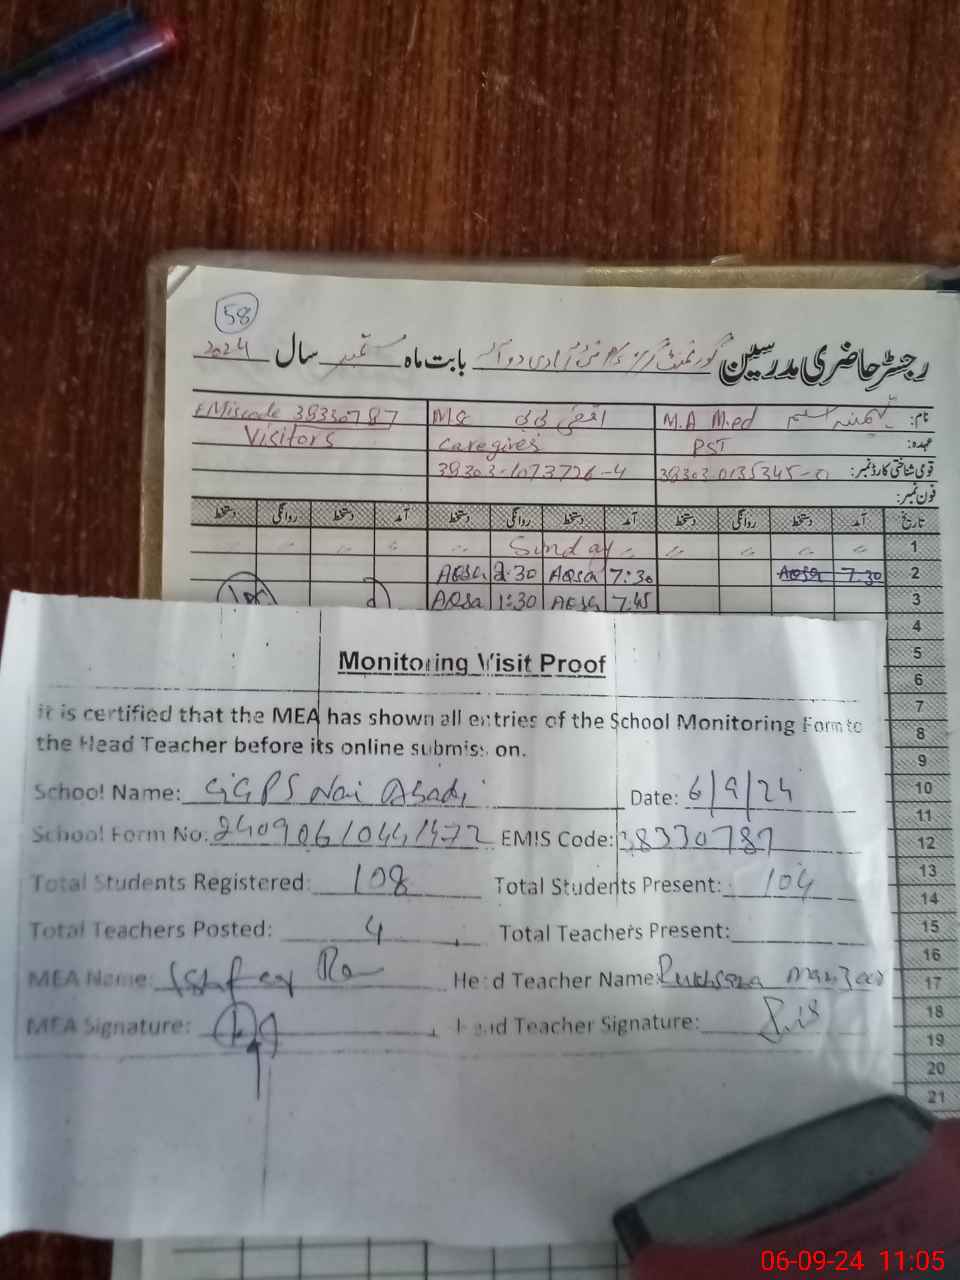 58
رجسٹر حاضری مدرسین گورنمنٹ گرلز آبادی بابت ماہ ستمبر سال 2024
نام: M.A M.ed M.S EMiscode 38330787
عہدہ: PST Caregives Visitors
قومی شناختی کارڈ نمبر: 38303-0135345-0 38303-1073726-4
فون نمبر:
تاریخ آمد دستخط روانگی دستخط آمد دستخط روانگی دستخط آمد دستخط روانگی دستخط
1 Sunday
2 7:30 AQSA 7:30 AQSA 2:30 AQSA
3 7:45 AQSA 1:30 AQSA
4
5
6
7
8
9
10
11
12
13
14
15
16
17
18
19
20
21
Monitoring Visit Proof
it is certified that the MEA has shown all entries of the School Monitoring Form to
the Head Teacher before its online submission.
School Name: GGPS Nai Abadi Date: 6/9/24
School Form No: EMIS Code: 38330787
Total Students Registered: 108 Total Students Present: 104
Total Teachers Posted: 4 Total Teachers Present:
MEA Name: Head Teacher Name: Rukhsana
MEA Signature: Head Teacher Signature:
06-09-24 11:05